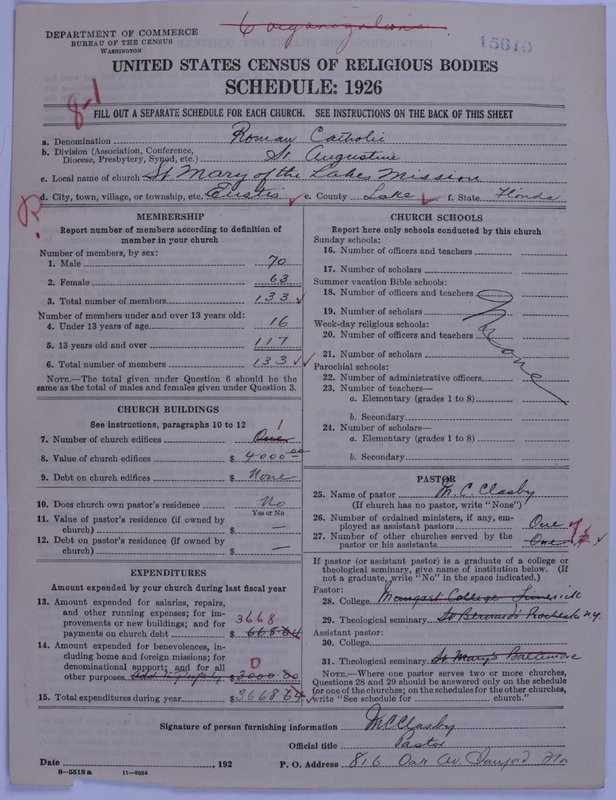 6 organizations
DEPARTMENT OF COMMERCE
BUREAU OF THE CENSUS
WASHINGTON
15640
UNITED STATES CENSUS OF RELIGIOUS BODIES
SCHEDULE: 1926
8-1
FILL OUT A SEPARATE SCHEDULE FOR EACH CHURCH. SEE INSTRUCTIONS ON THE BACK OF THIS SHEET
a. Denomination Roman Catholic
b. Division (Association, Conference, Diocese, Presbytery, Synod, etc.) St. Augustine
c. Local name of church St Mary of the Lakes Mission
d. City, town, village, or township, etc. Eustis e. County Lake f. State Florida
R.
MEMBERSHIP
Report number of members according to definition of
member in your church
Number of members, by sex:
1. Male 70
2. Female 63
3. Total number of members 133
Number of members under and over 13 years old:
4. Under 13 years of age 16
5. 13 years old and over 117
6. Total number of members 133
NOTE.—The total given under Question 6 should be the
same as the total of males and females given under Question 3.
CHURCH BUILDINGS
See instructions, paragraphs 10 to 12
7. Number of church edifices One 1
8. Value of church edifices $ 4000 00
9. Debt on church edifices $ None
10. Does church own pastor's residence No
Yes or No
11. Value of pastor's residence (if owned by
church) $ —
12. Debt on pastor's residence (if owned by
church) $ —
EXPENDITURES
Amount expended by your church during last fiscal year
13. Amount expended for salaries, repairs,
and other running expenses; for im-
provements or new buildings; and for 3668
payments on church debt $ 668.64
14. Amount expended for benevolences, in-
cluding home and foreign missions; for
denominational support; and for all 0
other purposes $ 3000 00
15. Total expenditures during year $ 3668 64
CHURCH SCHOOLS
Report here only schools conducted by this church
Sunday schools:
16. Number of officers and teachers
17. Number of scholars
Summer vacation Bible schools:
18. Number of officers and teachers
19. Number of scholars
Week-day religious schools:
20. Number of officers and teachers
21. Number of scholars
None
Parochial schools:
22. Number of administrative officers
23. Number of teachers—
a. Elementary (grades 1 to 8)
b. Secondary
24. Number of scholars—
a. Elementary (grades 1 to 8)
b. Secondary
PASTOR
25. Name of pastor M. C. Clasby
(If church has no pastor, write "None")
26. Number of ordained ministers, if any, em-
ployed as assistant pastors One
27. Number of other churches served by the
pastor or his assistants One
If pastor (or assistant pastor) is a graduate of a college or
theological seminary, give name of institution below. (If
not a graduate, write "No" in the space indicated.)
Pastor:
28. College Mungret College Limerick
29. Theological seminary St Bernard's Rochester N.Y.
Assistant pastor:
30. College
31. Theological seminary St Mary's Baltimore
NOTE.—Where one pastor serves two or more churches,
Questions 28 and 29 should be answered only on the schedule
for one of the churches; on the schedules for the other churches,
write "See schedule for church."
Signature of person furnishing information M C Clasby
Official title Pastor
Date , 192 P. O. Address 816 Oak Av. Sanford Fla
8—5518 a 11—9054